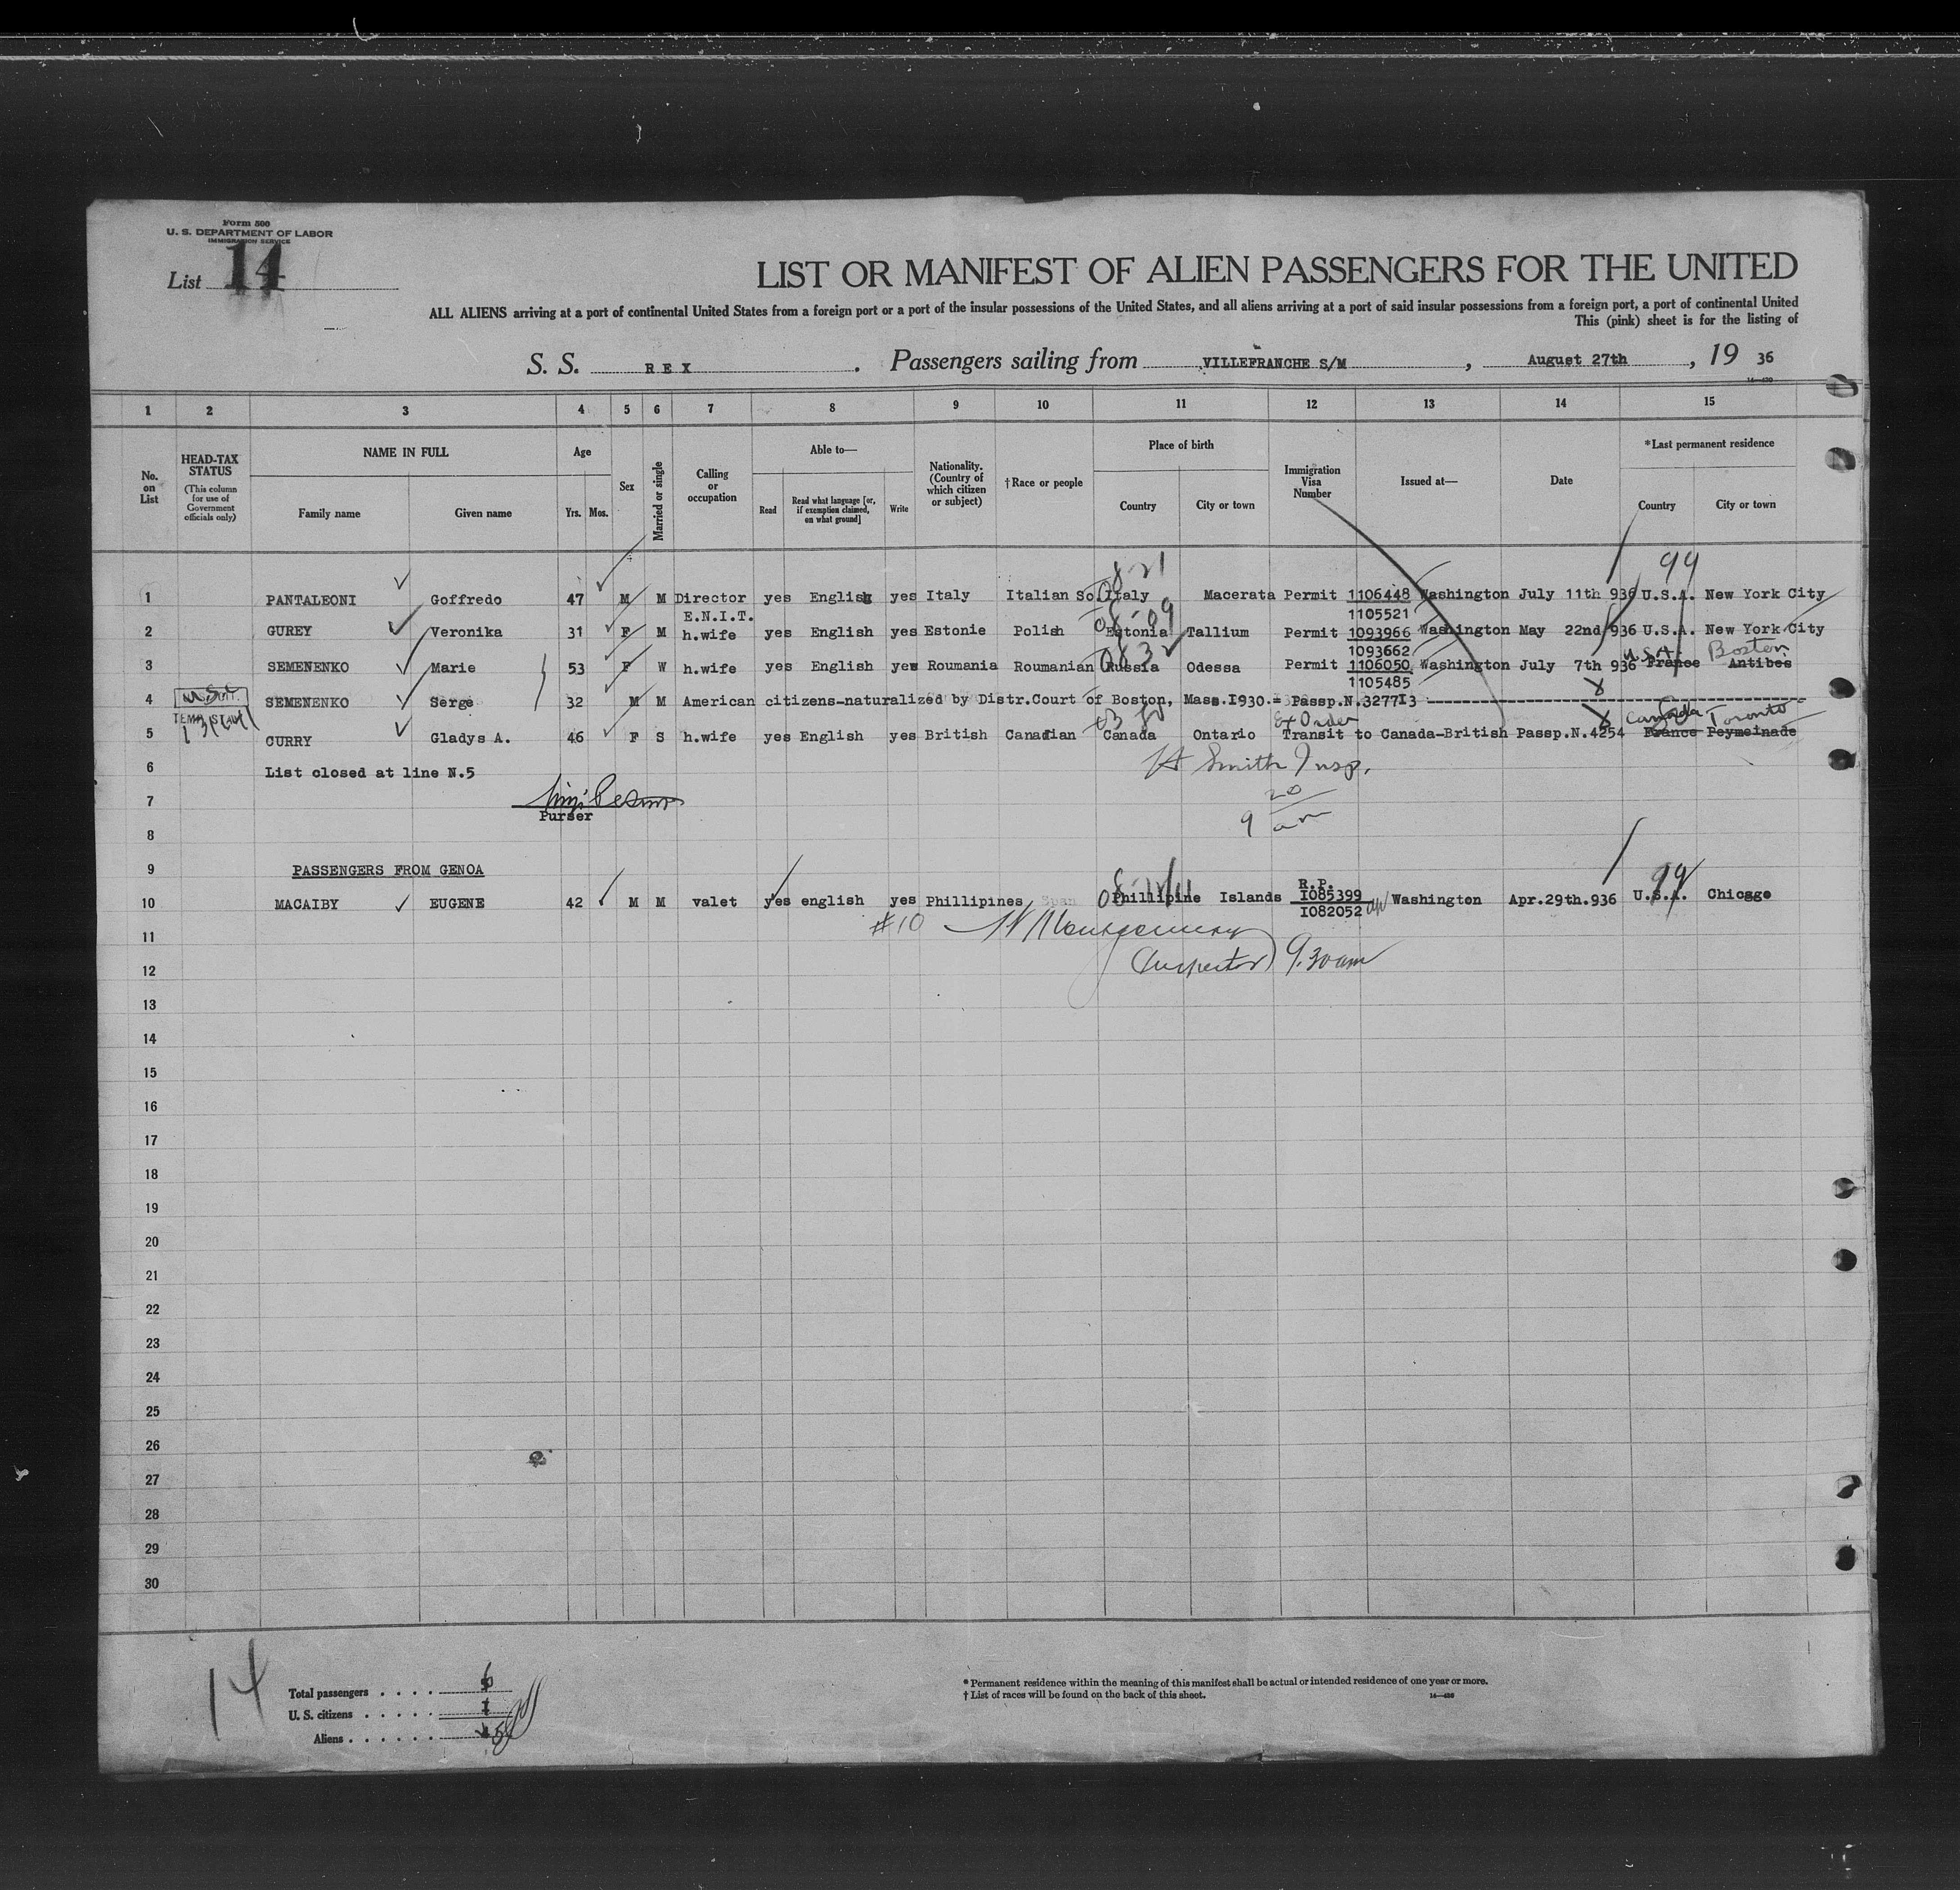 Form 500
U. S. DEPARTMENT OF LABOR
IMMIGRATION SERVICE
List 14
LIST OR MANIFEST OF ALIEN PASSENGERS FOR THE UNITED
ALL ALIENS arriving at a port of continental United States from a foreign port or a port of the insular possessions of the United States, and all aliens arriving at a port of said insular possessions from a foreign port, a port of continental United
This (pink) sheet is for the listing of
S. S. REX. Passengers sailing from VILLEFRANCHE S/M, August 27th, 19 36
1 2 3 4 5 6 7 8 9 10 11 12 13 14 15
No. on List
HEAD-TAX STATUS (This column for use of Government officials only)
NAME IN FULL
Family name Given name
Age
Yrs. Mos.
Sex
Married or single
Calling or occupation
Able to—
Read Read what language [or, if exemption claimed, on what ground] Write
Nationality. (Country of which citizen or subject)
†Race or people
Place of birth
Country City or town
Immigration Visa Number
Issued at—
Date
*Last permanent residence
Country City or town
99
1 PANTALEONI Goffredo 47 M M Director yes English yes Italy Italian So. Italy Macerata Permit 1106448 Washington July 11th 936 U.S.A. New York City
E.N.I.T. 1105521
2 GUREY Veronika 31 F M h.wife yes English yes Estonie Polish Estonia Tallium Permit 1093966 Washington May 22nd 936 U.S.A. New York City
1093662 U.S.A. Boston
3 SEMENENKO Marie 53 F W h.wife yes English yes Roumania Roumanian Russia Odessa Permit 1106050 Washington July 7th 936 France Antibes
1105485
4 SEMENENKO Serge 32 M M American citizens-naturalized by Distr.Court of Boston, Mass.I930.= Passp.N.3277I3
Ex Order Canada Toronto
5 CURRY Gladys A. 46 F S h.wife yes English yes British Canadian Canada Ontario Transit to Canada-British Passp.N.4254 France Peymeinade
6 List closed at line N.5 Smith Insp.
7 20
Purser 9 am
8
9 PASSENGERS FROM GENOA
R.P. 99
10 MACAIBY EUGENE 42 M M valet yes english yes Phillipines Phillipine Islands I085399 Washington Apr.29th.936 U.S.A. Chicago
I082052
11 #10 Montgomery
12 (Inspector) 9.30 am
13
14
15
16
17
18
19
20
21
22
23
24
25
26
27
28
29
30
14
Total passengers . . . . 6
U. S. citizens . . . . . 1
Aliens . . . . . . 5
* Permanent residence within the meaning of this manifest shall be actual or intended residence of one year or more.
† List of races will be found on the back of this sheet.